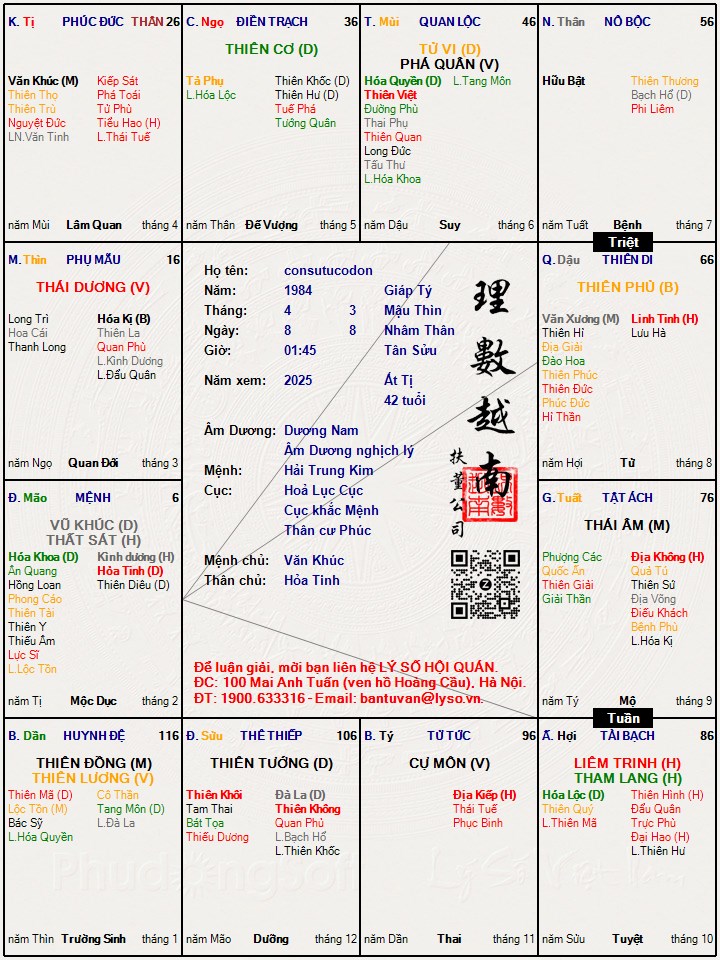 K. Tị PHÚC ĐỨC THÂN 26
Văn Khúc (M) Kiếp Sát
Thiên Thọ Phá Toái
Thiên Trù Tử Phù
Nguyệt Đức Tiểu Hao (H)
LN.Văn Tinh L.Thái Tuế
năm Mùi Lâm Quan tháng 4
C. Ngọ ĐIỀN TRẠCH 36
THIÊN CƠ (D)
Tả Phụ Thiên Khốc (D)
L.Hóa Lộc Thiên Hư (D)
Tuế Phá
Tướng Quân
năm Thân Đế Vượng tháng 5
T. Mùi QUAN LỘC 46
TỬ VI (D)
PHÁ QUÂN (V)
Hóa Quyền (D) L.Tang Môn
Thiên Việt
Đường Phù
Thai Phụ
Thiên Quan
Long Đức
Tấu Thư
L.Hóa Khoa
năm Dậu Suy tháng 6
N. Thân NÔ BỘC 56
Hữu Bật Thiên Thương
Bạch Hổ (D)
Phi Liêm
năm Tuất Bệnh tháng 7
Triệt
M. Thìn PHỤ MẪU 16
THÁI DƯƠNG (V)
Long Trì Hóa Kị (B)
Hoa Cái Thiên La
Thanh Long Quan Phù
L.Kình Dương
L.Đẩu Quân
năm Ngọ Quan Đới tháng 3
Họ tên: consutucodon
Năm: 1984 Giáp Tý
Tháng: 4 3 Mậu Thìn
Ngày: 8 8 Nhâm Thân
Giờ: 01:45 Tân Sửu
Năm xem: 2025 Ất Tị
42 tuổi
Âm Dương: Dương Nam
Âm Dương nghịch lý
Mệnh: Hải Trung Kim
Cục: Hoả Lục Cục
Cục khắc Mệnh
Thân cư Phúc
Mệnh chủ: Văn Khúc
Thân chủ: Hỏa Tinh
理數越南
扶董公司
Để luận giải, mời bạn liên hệ LÝ SỐ HỘI QUÁN.
ĐC: 100 Mai Anh Tuấn (ven hồ Hoàng Cầu), Hà Nội.
ĐT: 1900.633316 - Email: bantuvan@lyso.vn.
Q. Dậu THIÊN DI 66
THIÊN PHỦ (B)
Văn Xương (M) Linh Tinh (H)
Thiên Hỉ Lưu Hà
Địa Giải
Đào Hoa
Thiên Phúc
Thiên Đức
Phúc Đức
Hỉ Thần
năm Hợi Tử tháng 8
Đ. Mão MỆNH 6
VŨ KHÚC (D)
THẤT SÁT (H)
Hóa Khoa (D) Kình dương (H)
Ân Quang Hỏa Tinh (D)
Hồng Loan Thiên Diêu (D)
Phong Cáo
Thiên Tài
Thiên Y
Thiếu Âm
Lực Sĩ
L.Lộc Tồn
năm Tị Mộc Dục tháng 2
G. Tuất TẬT ÁCH 76
THÁI ÂM (M)
Phượng Các Địa Không (H)
Quốc Ấn Quả Tú
Thiên Giải Thiên Sứ
Giải Thần Địa Võng
Điếu Khách
Bệnh Phù
L.Hóa Kị
năm Tý Mộ tháng 9
Tuần
B. Dần HUYNH ĐỆ 116
THIÊN ĐỒNG (M)
THIÊN LƯƠNG (V)
Thiên Mã (D) Cô Thần
Lộc Tồn (M) Tang Môn (D)
Bác Sỹ L.Đà La
L.Hóa Quyền
năm Thìn Trường Sinh tháng 1
Đ. Sửu THÊ THIẾP 106
THIÊN TƯỚNG (D)
Thiên Khôi Đà La (D)
Tam Thai Thiên Không
Bát Tọa Quan Phủ
Thiếu Dương L.Bạch Hổ
L.Thiên Khốc
năm Mão Dưỡng tháng 12
B. Tý TỬ TỨC 96
CỰ MÔN (V)
Địa Kiếp (H)
Thái Tuế
Phục Binh
năm Dần Thai tháng 11
Ấ. Hợi TÀI BẠCH 86
LIÊM TRINH (H)
THAM LANG (H)
Hóa Lộc (D) Thiên Hình (H)
Thiên Quý Đẩu Quân
L.Thiên Mã Trực Phù
Đại Hao (H)
L.Thiên Hư
năm Sửu Tuyệt tháng 10
PhudongSoft Lý Số Việt Nam